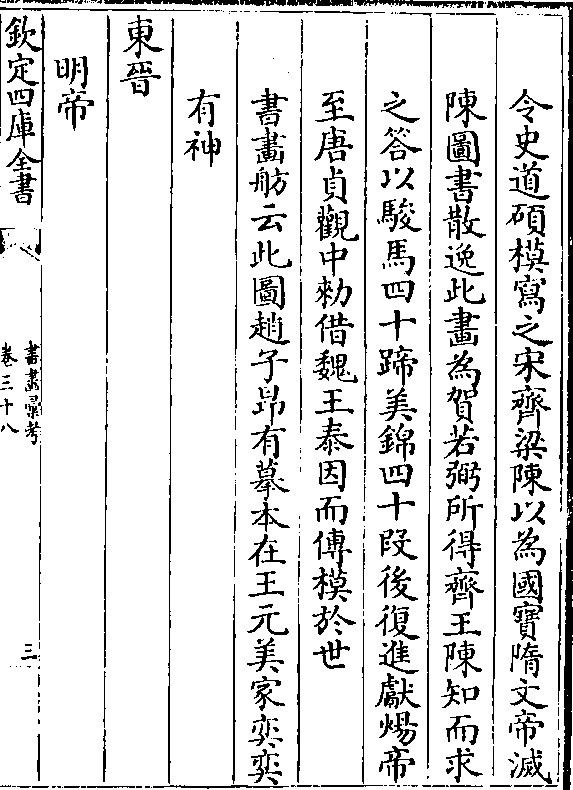 令史道碩模寫之宋齊梁陳以為國寶隋文帝滅
陳圖書散逸此畫為賀若弼所得齊王陳知而求
之答以駿馬四十蹄美錦四十段後復進獻煬帝
至唐貞觀中勑借魏王泰因而傳模於世
書畫舫云此圖趙子昂有摹本在王元美家奕奕
有神
東晉
明帝
欽定四庫全書
書畫彙考
卷三十八
三